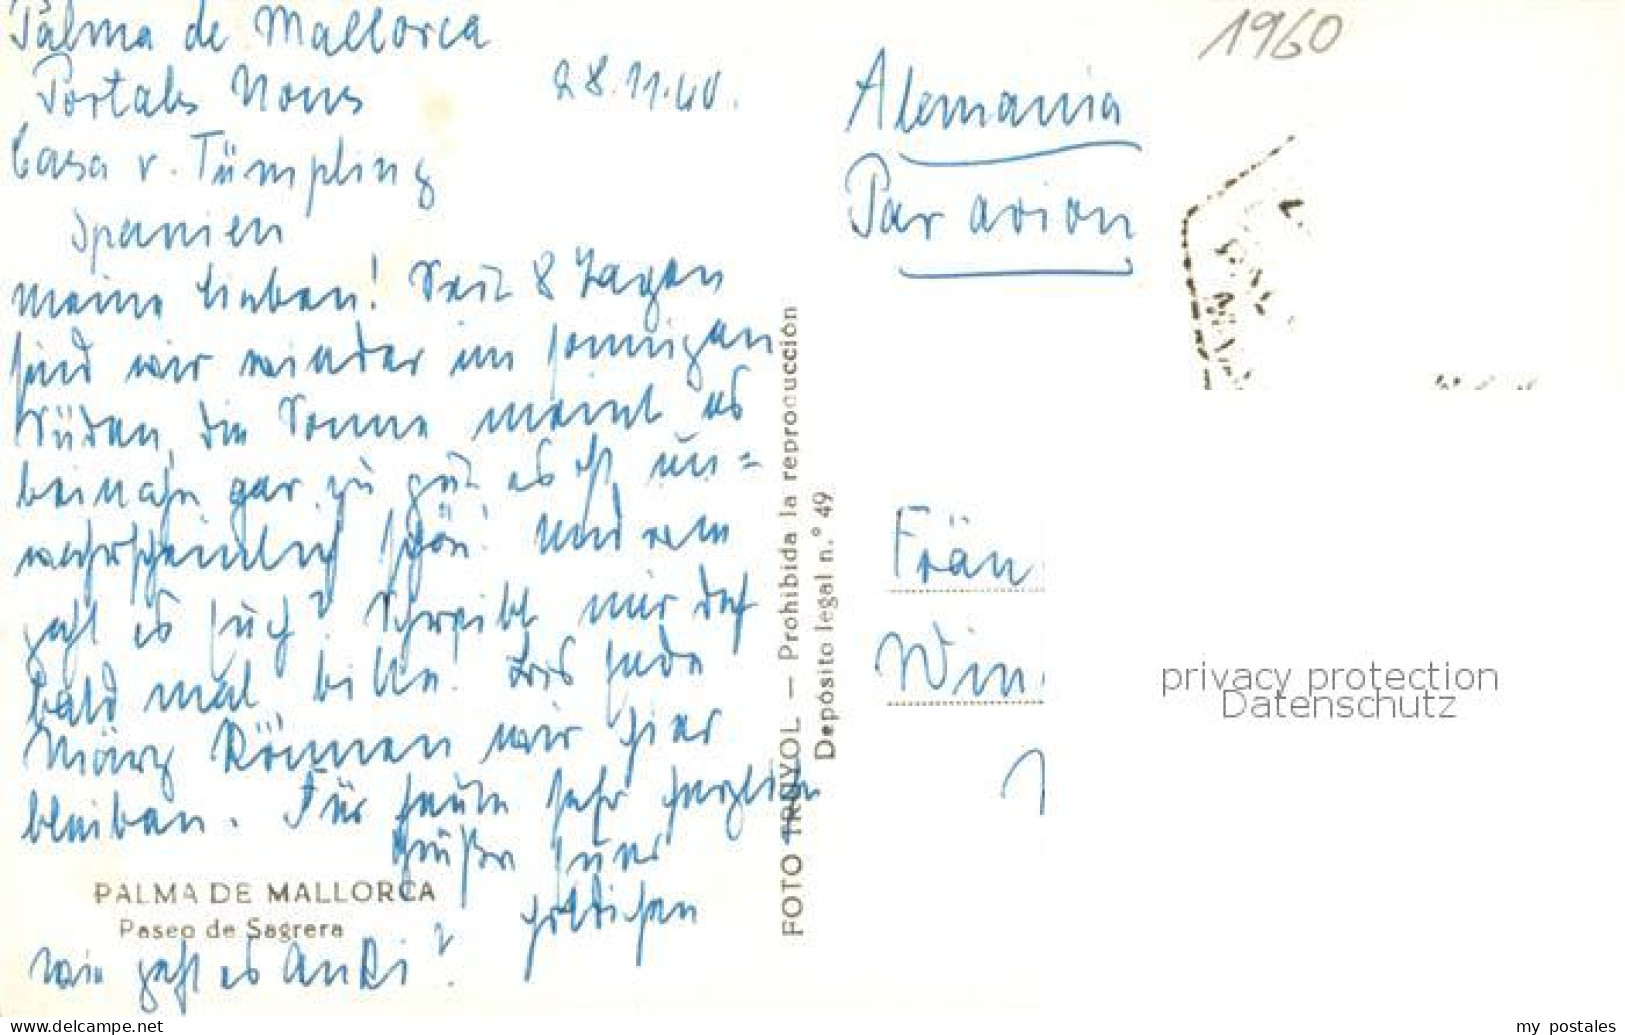 Palma de Mallorca
Portals Nous
28.11.60.
Casa v. Tümpling
Spanien
meine Lieben! Seit 8 Tagen
sind wir wieder im sonnigen
Süden, die Sonne meint es
beinahe gar zu gut es ist un=
wahrscheinlich schön. Und wie
geht es Euch? Schreibt mir doch
bald mal bitte. Bis Ende
März können wir hier
bleiben. Für heute sehr herzliche
Grüße Euer
wie geht es Anki?
PALMA DE MALLORCA
Paseo de Sagrera
FOTO TRUYOL — Prohibida la reproducción
Depósito legal n.° 49
1960
Alemania
Par avion
Frän
Win
privacy protection
Datenschutz
www.delcampe.net
my_postales